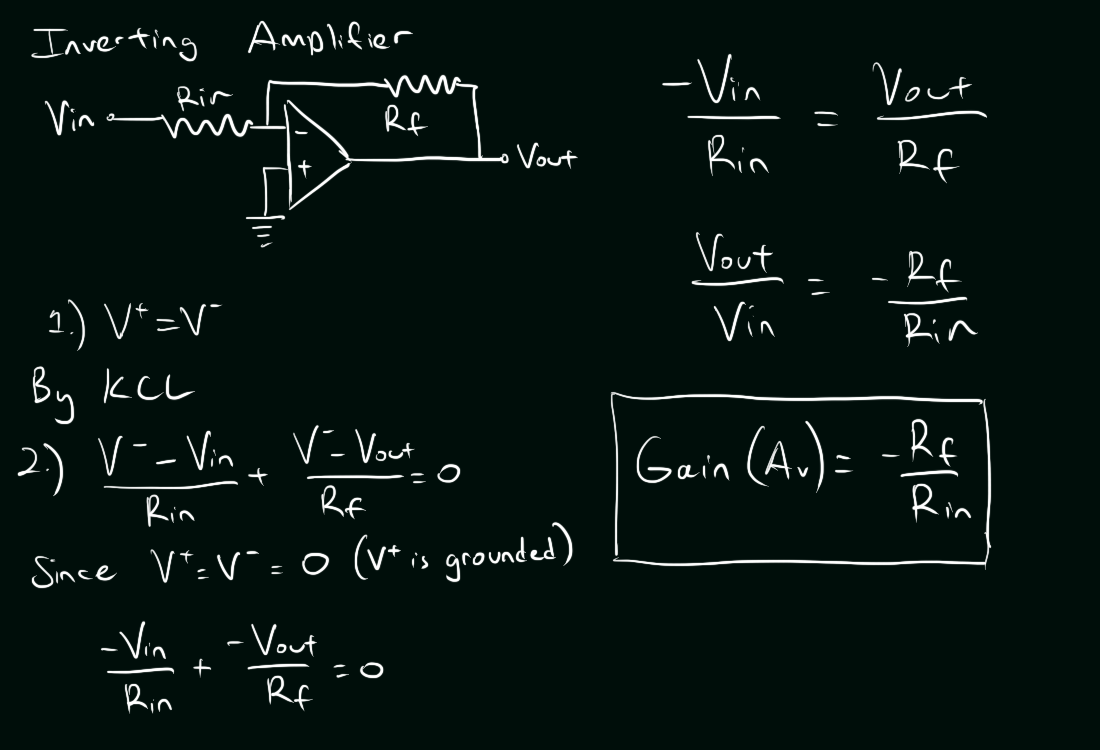 Inverting Amplifier
Vin
Rin
Rf
-
+
Vout
1.) V⁺=V⁻
By KCL
2.) (V⁻-Vin)/Rin + (V⁻-Vout)/Rf = 0
Since V⁺=V⁻=0 (V⁺ is grounded)
-Vin/Rin + -Vout/Rf = 0
-Vin/Rin = Vout/Rf
Vout/Vin = -Rf/Rin
Gain (Av) = -Rf/Rin